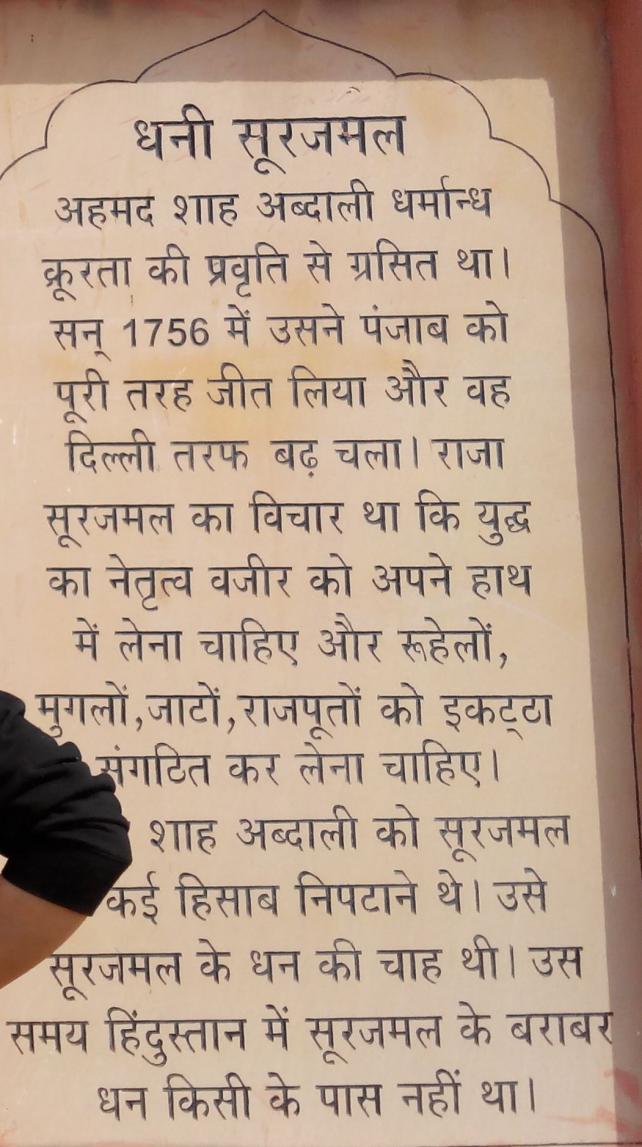 धनी सूरजमल
अहमद शाह अब्दाली धर्मान्ध
क्रूरता की प्रवृति से ग्रसित था।
सन् 1756 में उसने पंजाब को
पूरी तरह जीत लिया और वह
दिल्ली तरफ बढ़ चला। राजा
सूरजमल का विचार था कि युद्ध
का नेतृत्व वजीर को अपने हाथ
में लेना चाहिए और रूहेलों,
मुगलों,जाटों,राजपूतों को इकट्टा
संगटित कर लेना चाहिए।
शाह अब्दाली को सूरजमल
कई हिसाब निपटाने थे। उसे
सूरजमल के धन की चाह थी। उस
समय हिंदुस्तान में सूरजमल के बराबर
धन किसी के पास नहीं था।